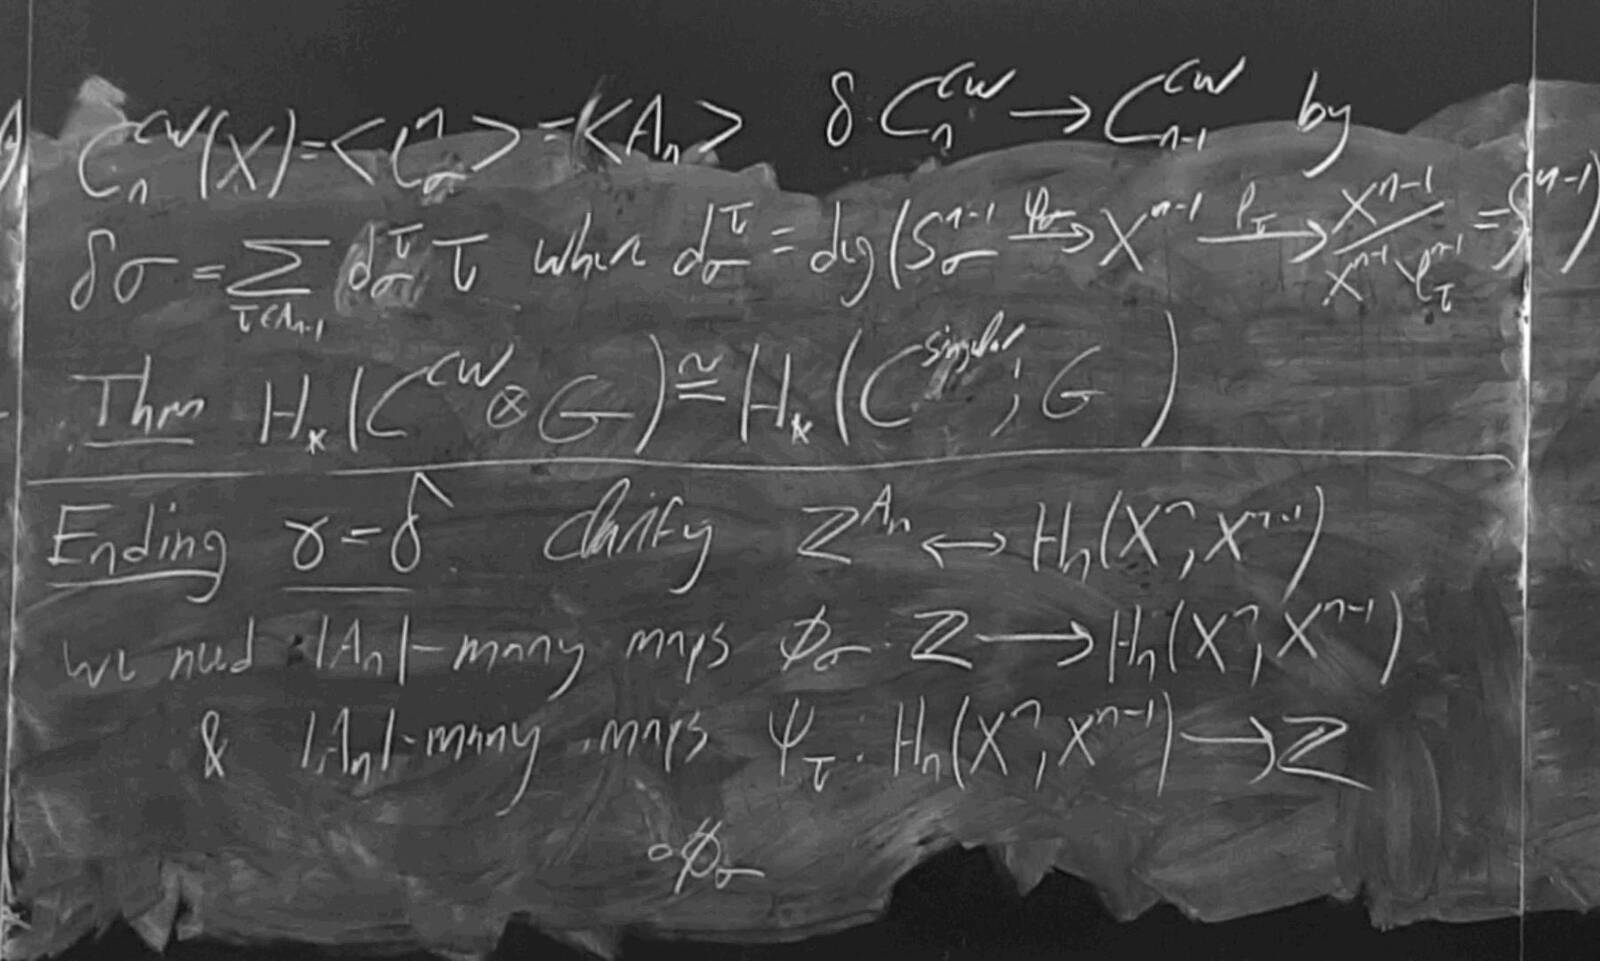 C_n^{CW}(X) = <e_σ^n> = <A_n> δ: C_n^{CW} → C_{n-1}^{CW} by
δσ = Σ_{τ∈A_{n-1}} d_σ^τ τ where d_σ^τ = deg(S_σ^{n-1} →^{φ_σ} X^{n-1} →^{ρ_τ} X^{n-1}/X^{n-1}\e_τ^{n-1} = S^{n-1})
Thm H_*(C^{CW} ⊗ G) ≅ H_*(C^{singular}; G)
Ending γ = δ clarify Z^{A_n} ↔ H_n(X^n, X^{n-1})
we need |A_n|-many maps ϕ_σ: Z → H_n(X^n, X^{n-1})
& |A_n|-many maps ψ_τ: H_n(X^n, X^{n-1}) → Z
∘ϕ_σ